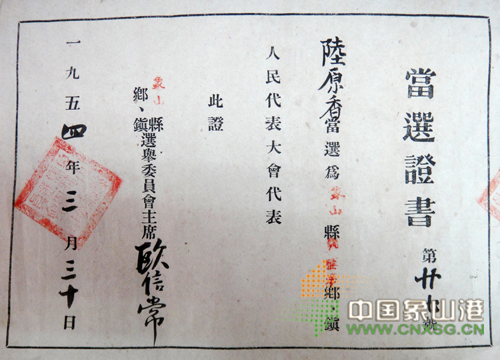 當選證書
第廿七號
陸原香當選爲象山縣鄉鎮
人民代表大會代表
此證
象山縣
鄉、鎮選舉委員會主席 歐信常
一九五四年三月三十日
中国象山港
WWW.CNXSG.CN